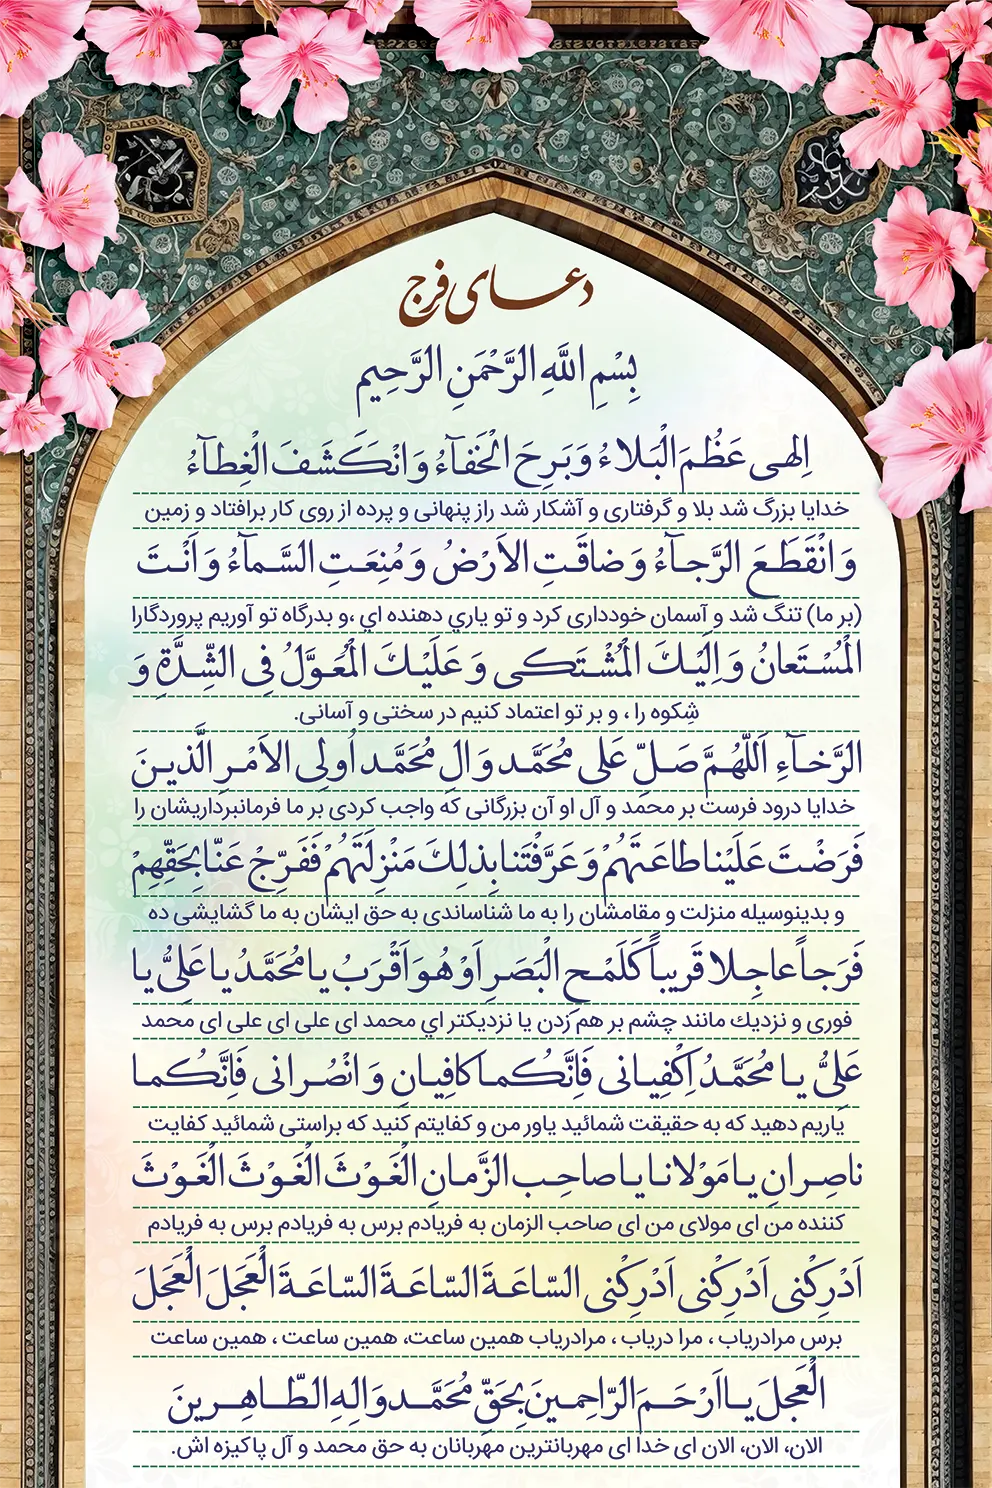 دعای فرج
بِسْمِ اللَّهِ الرَّحْمَنِ الرَّحِیمِ
اِلهى عَظُمَ الْبَلاءُ وَ بَرِحَ الْخَفآءُ وَ انْكَشَفَ الْغِطآءُ
خدایا بزرگ شد بلا و گرفتاری و آشکار شد راز پنهانی و پرده از روی کار برافتاد و زمین
وَ انْقَطَعَ الرَّجآءُ وَ ضاقَتِ الاَرْضُ وَ مُنِعَتِ السَّمآءُ وَ اَنْتَ
(بر ما) تنگ شد و آسمان خودداری کرد و تو یاري دهنده اي ،و بدرگاه تو آوریم پروردگارا
الْمُسْتَعانُ وَ اِلَيْكَ الْمُشْتَكى وَ عَلَيْكَ الْمُعَوَّلُ فِى الشِّدَّةِ وَ
شِکوه را ، و بر تو اعتماد کنیم در سختی و آسانی.
الرَّخآءِ اَللّهُمَّ صَلِّ عَلى مُحَمَّد وَ الِ مُحَمَّد اُولِى الاَمْرِ الَّذينَ
خدایا درود فرست بر محمد و آل او آن بزرگانی که واجب کردی بر ما فرمانبرداریشان را
فَرَضْتَ عَلَيْنا طاعَتَهُمْ وَ عَرَّفْتَنا بِذلِكَ مَنْزِلَتَهُمْ فَفَرِّجْ عَنّا بِحَقِّهِمْ
و بدینوسیله منزلت و مقامشان را به ما شناساندی به حق ایشان به ما گشایشی ده
فَرَجاً عاجِلا قَريباً كَلَمْحِ الْبَصَرِ اَوْ هُوَ اَقْرَبُ يا مُحَمَّدُ يا عَلِىُّ يا
فوری و نزدیك مانند چشم بر هم زدن یا نزدیکتر اي محمد ای علی ای علی ای محمد
عَلِىُّ يا مُحَمَّدُ اِكْفِيانى فَاِنَّكُما كافِيانِ وَ انْصُرانى فَاِنَّكُما
یاریم دهید که به حقیقت شمائید یاور من و کفایتم کنید که براستی شمائید کفایت
ناصِرانِ يا مَوْلانا يا صاحِبَ الزَّمانِ الْغَوْثَ الْغَوْثَ الْغَوْثَ
کننده من ای مولای من ای صاحب الزمان به فریادم برس به فریادم برس به فریادم
اَدْرِكْنى اَدْرِكْنى اَدْرِكْنى السّاعَةَ السّاعَةَ السّاعَةَ الْعَجَلَ الْعَجَلَ
برس مرادریاب ، مرا دریاب ، مرادریاب همین ساعت، همین ساعت ، همین ساعت
الْعَجَلَ يا اَرْحَمَ الرّاحِمينَ بِحَقِّ مُحَمَّد وَ الِهِ الطّاهِرينَ
الان، الان، الان ای خدا ای مهربانترین مهربانان به حق محمد و آل پاکیزه اش.